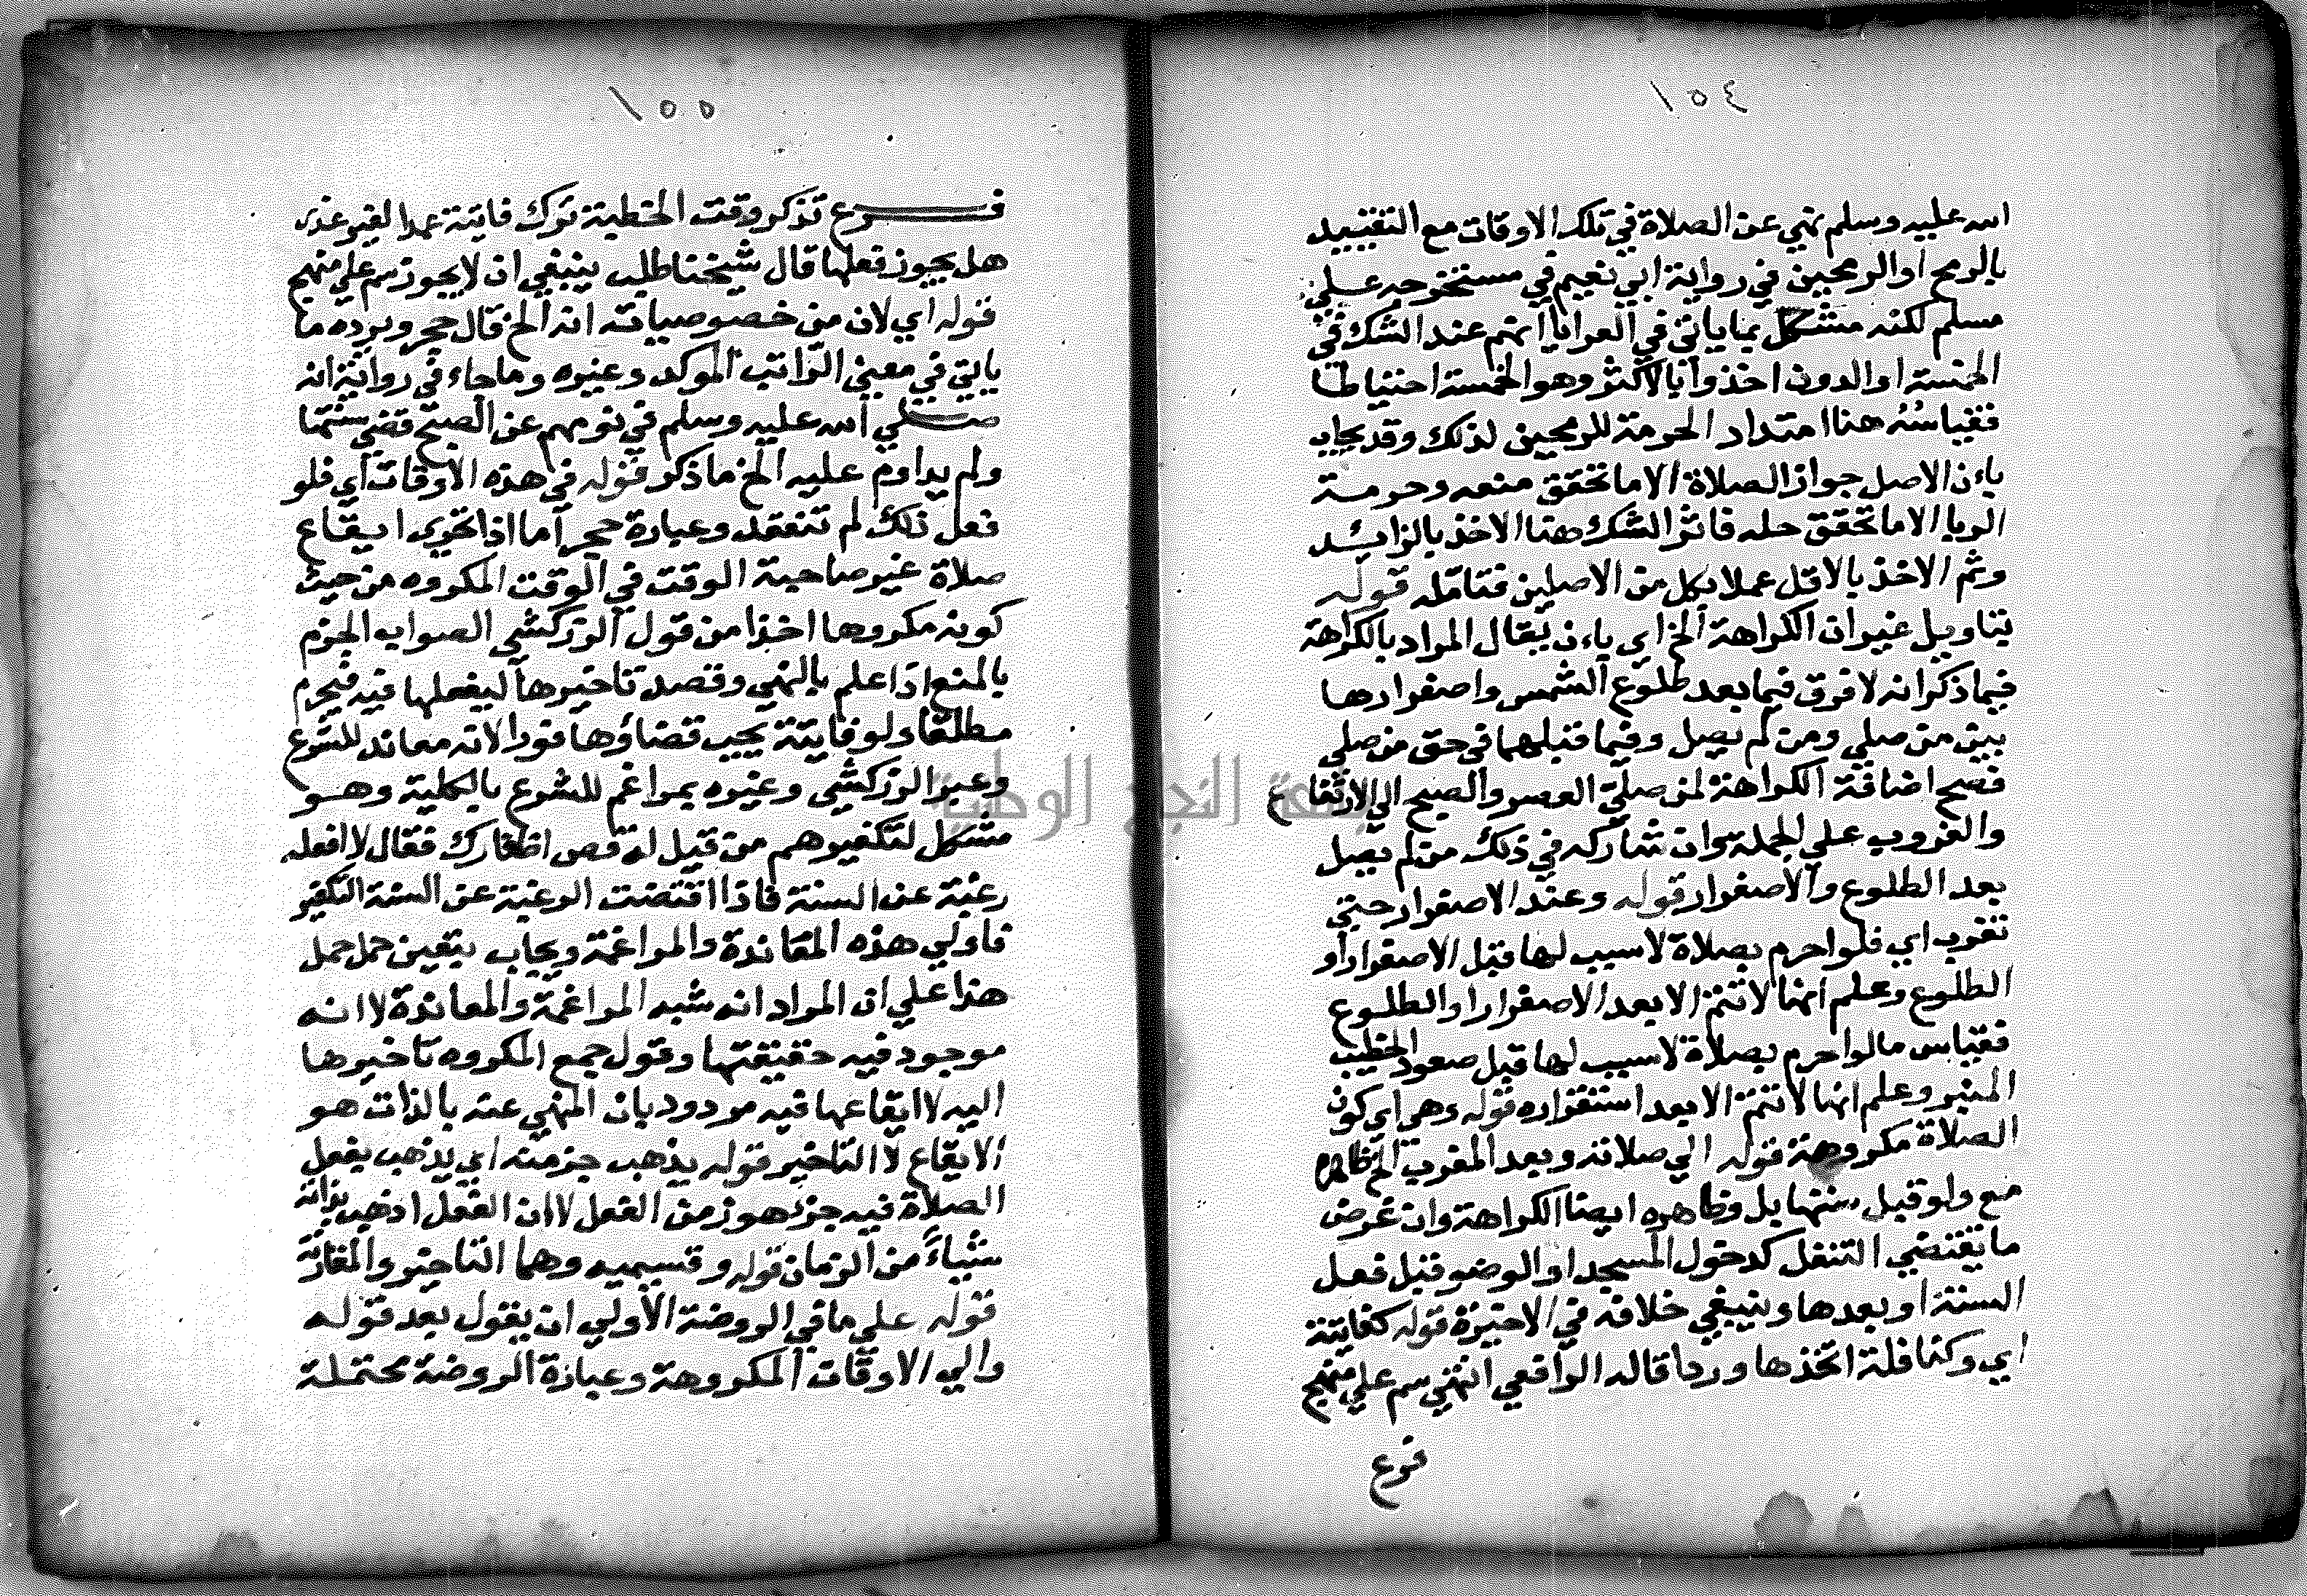 ١٥٤
الله عليه وسلم نهي عن الصلاة في تلك الاوقات مع التقييد
بالرمح او الرمحين في رواية ابي نعيم في مستخرجه علي
مسلم لكنه مشكل بما ياتي في العرايا انهم عند الشك في
الخمسة او الدون اخذوا بالاكثر وهو الخمسة احتياطا
فقياسه هنا امتداد الحرمة للرمحين لذلك وقد يجاب
باءن الاصل جواز الصلاة الا ما تحقق منعه وحرمة
الربا الا ما تحقق حله فاثر الشك هنا الاخذ بالزائد
وثم الاخذ بالاقل عملا بكل من الاصلين فتامله قوله
يتاويل غير ان الكراهة الخ اي باءن يقال المراد بالكراهة
فيما ذكر انه لا فرق فيما بعد طلوع الشمس واصفرارها
بين من صلي ومن لم يصل وفيما قبلهما في حق من صلي
فصح اضافة الكراهة لمن صلي العصر والصبح الي الارتفاع
والغروب علي الجملة وان شاركه في ذلك من لم يصل
بعد الطلوع والاصفرار قوله وعند الاصفرار حتي
تغرب اي فلو احرم بصلاة لا سبب لها قبل الاصفرار او
الطلوع وعلم انها لا تتم الا بعد الاصفرار او الطلوع
فقياس ما لو احرم بصلاة لا سبب لها قبل صعود الخطيب
المنبر وعلم انها لا تتم الا بعد استقراره قوله وهي اي كون
الصلاة مكروهة قوله الي صلاته وبعد المغرب الخ ظاهره
منع ولو قبل سنتها بل وظاهره ايضا الكراهة وان عرض
ما يقتضي التنفل كدخول المسجد او الوضو قبل فعل
السنة او بعدها وينبغي خلافه في الاخيرة قوله كفايتة
اي وكنافلة اتخذها وردا قاله الرافعي انتهي سم علي منهج
فرع
١٥٥
فرع تذكر وقت الخطبة ترك فايتة عمدا لغير عذر
هل يجوز فعلها قال شيخنا طلب ينبغي ان لا يجوز سم علي منهج
قوله اي لان من خصوصياته انه الخ قال حجر ويرده ما
ياتي في معني الراتب الموكد وغيره وما جاء في رواية انه
صلي الله عليه وسلم في نومهم عن الصبح قضي سنتها
ولم يداوم عليه الخ ما ذكر قوله في هذه الاوقات اي فلو
فعل ذلك لم تنعقد وعبارة حجر اما اذا تحري ايقاع
صلاة غير صاحبة الوقت في الوقت المكروه من حيث
كونه مكروها اخذا من قول الزركشي الصواب الجزم
بالمنع اذا علم بالنهي وقصد تاخيرها ليفعلها فيه فيحرم
مطلقا ولو فايتة يجب قضاؤها فورا لانه معاند للشرع
وعبر الزركشي وغيره بمراغم للشرع بالكلية وهو
مشكل لتكفيرهم من قيل له قص اظفارك فقال لا افعله
رغبة عن السنة فاذا اقتضت الرغبة عن السنة التكفير
فاولي هذه المعاندة والمراغمة ويجاب يتعين حمل حمل
هذا علي ان المراد انه شبه المراغمة والمعاندة لا انه
موجود فيه حقيقتها وقول جمع المكروه تاخيرها
اليه لا ايقاعها فيه مردود بان المنهي عنه بالذات هو
الايقاع لا التاخير قوله يذهب جزمنه اي يذهب بفعل
الصلاة فيه جزء هو زمن الفعل لا ان الفعل اذهب بذاته
شياءً من الزمان قوله وقسيميه وهما التاخير والمقارنة
قوله علي ما في الروضة الاولي ان يقول بعد قوله
والي الاوقات المكروهة وعبارة الروضة محتملة
جامعة النجاح الوطنية